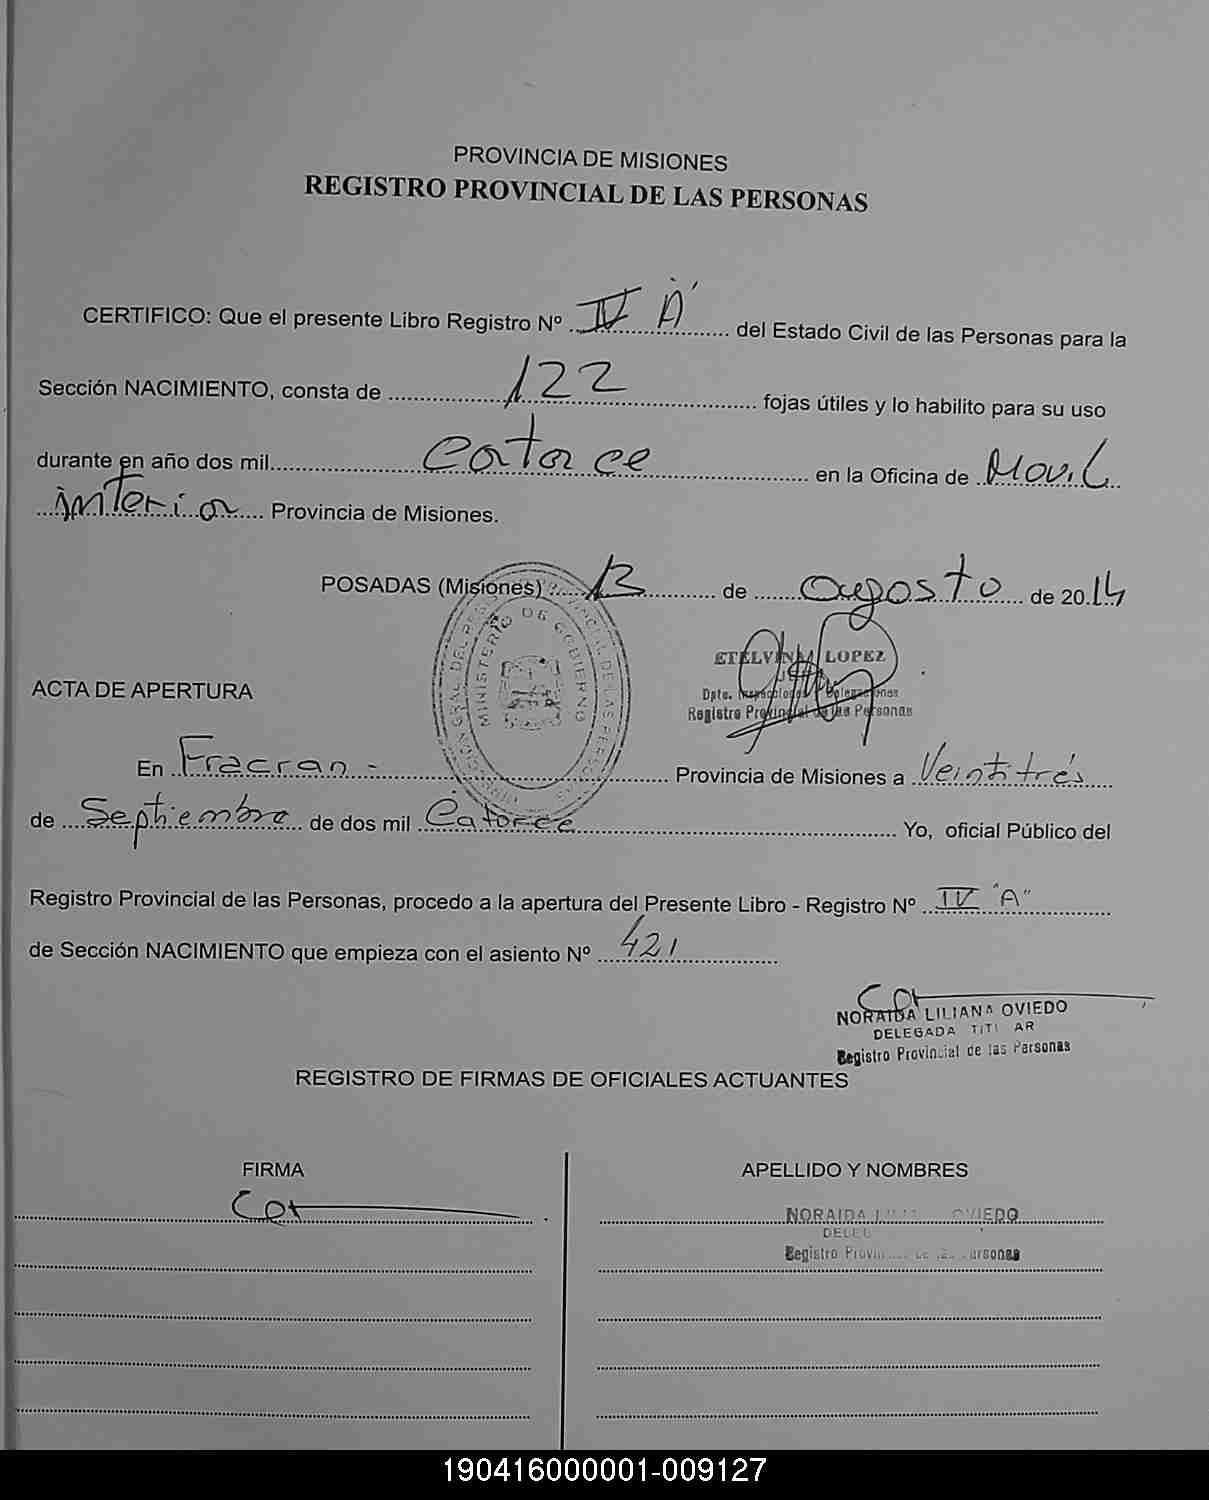 PROVINCIA DE MISIONES
REGISTRO PROVINCIAL DE LAS PERSONAS
CERTIFICO: Que el presente Libro Registro Nº IV "A" del Estado Civil de las Personas para la
Sección NACIMIENTO, consta de 122 fojas útiles y lo habilito para su uso
durante en año dos mil catorce en la Oficina de Movil
interior Provincia de Misiones.
POSADAS (Misiones) 13 de agosto de 2014
MINISTERIO DE GOBIERNO
ETELVINA LOPEZ
Dpto. Inspecciones Delegaciones
Registro Provincial de las Personas
ACTA DE APERTURA
En Fracran - Provincia de Misiones a Veintitrés
de Septiembre de dos mil Catorce Yo, oficial Público del
Registro Provincial de las Personas, procedo a la apertura del Presente Libro - Registro Nº IV "A"
de Sección NACIMIENTO que empieza con el asiento Nº 421
NORAIDA LILIANA OVIEDO
DELEGADA TITULAR
Registro Provincial de las Personas
REGISTRO DE FIRMAS DE OFICIALES ACTUANTES
FIRMA APELLIDO Y NOMBRES
NORAIDA OVIEDO
Registro Personas
190416000001-009127